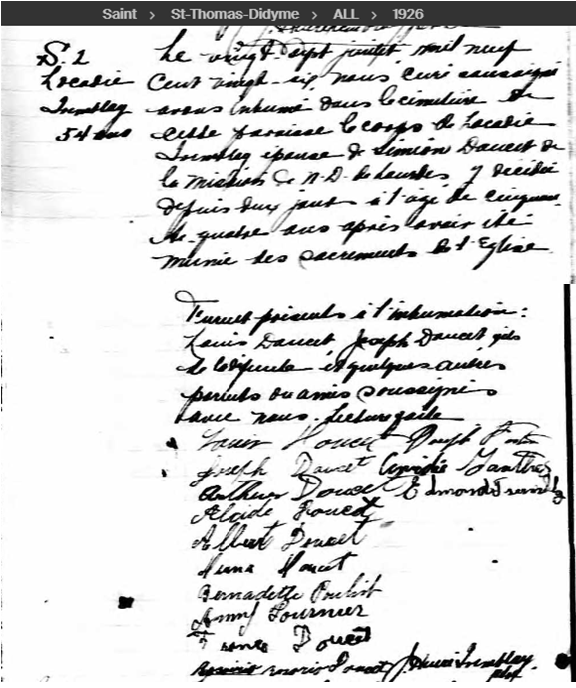 Saint > St-Thomas-Didyme > ALL > 1926
S. 2
Locadie
Tremblay
54 ans
Le vingt-sept juillet, mil neuf
cent vingt-six, nous curé soussigné
avons inhumé dans le cimetière de
cette paroisse le corps de Locadie
Tremblay épouse de Siméon Doucet de
la mission de N.-D. de Lourdes y décédée
depuis deux jours à l'âge de cinquan
te quatre ans après avoir été
munie des sacrements de l'Eglise.
Furent présents à l'inhumation:
Louis Doucet Joseph Doucet fils
de la défunte et quelques autres
parents ou amis soussignés
avec nous. Lecture faite
Louis Doucet
Joseph Doucet
Arthur Doucet Edmond Tremblay
Alcide Doucet
Albert Doucet
Doucet
Bernadette Pouliot
Fournier
Doucet
Rosario Doucet J. Henri Tremblay
ptre